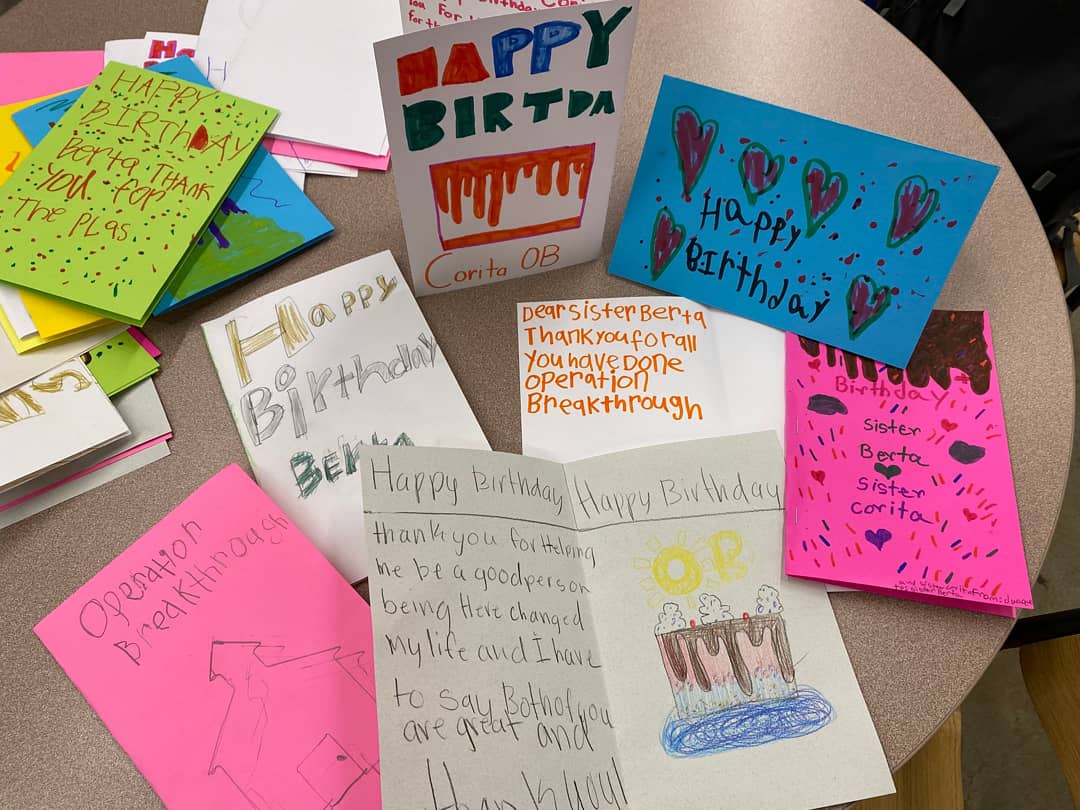 HAPPY
BIRTHDAY
Berta THANK
YOU for
The PLAS
HAPPY
BIRTDA
Corita OB
Happy
Birthday
Happy
Birthday
Dear Sister Berta
Thank you for all
You have Done
operation
Breakthrough
Birthday
Sister
Berta
Sister
corita
Operation
Breakthrough
Happy Birthday
thank you for Helping
me be a good person
being Here changed
my life and I have
to say Both of you
are great and
Thank You!
Happy Birthday
OB